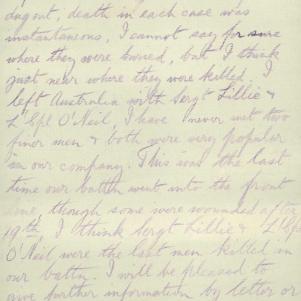 dugout, death in each case was
instantaneous, I cannot say for sure
where they were buried, but I think
just near where they were killed. I
left Australia with Sergt Lillie &
L'Cpl O'Neil, I have never met two
finer men & both were very popular
in our company. This was the last
time our battn went into the front
line, though some were wounded after
19th, I think Sergt Lillie & L'Cpl
O'Neil were the last men killed in
our battn. I will be pleased to
give further information by letter or